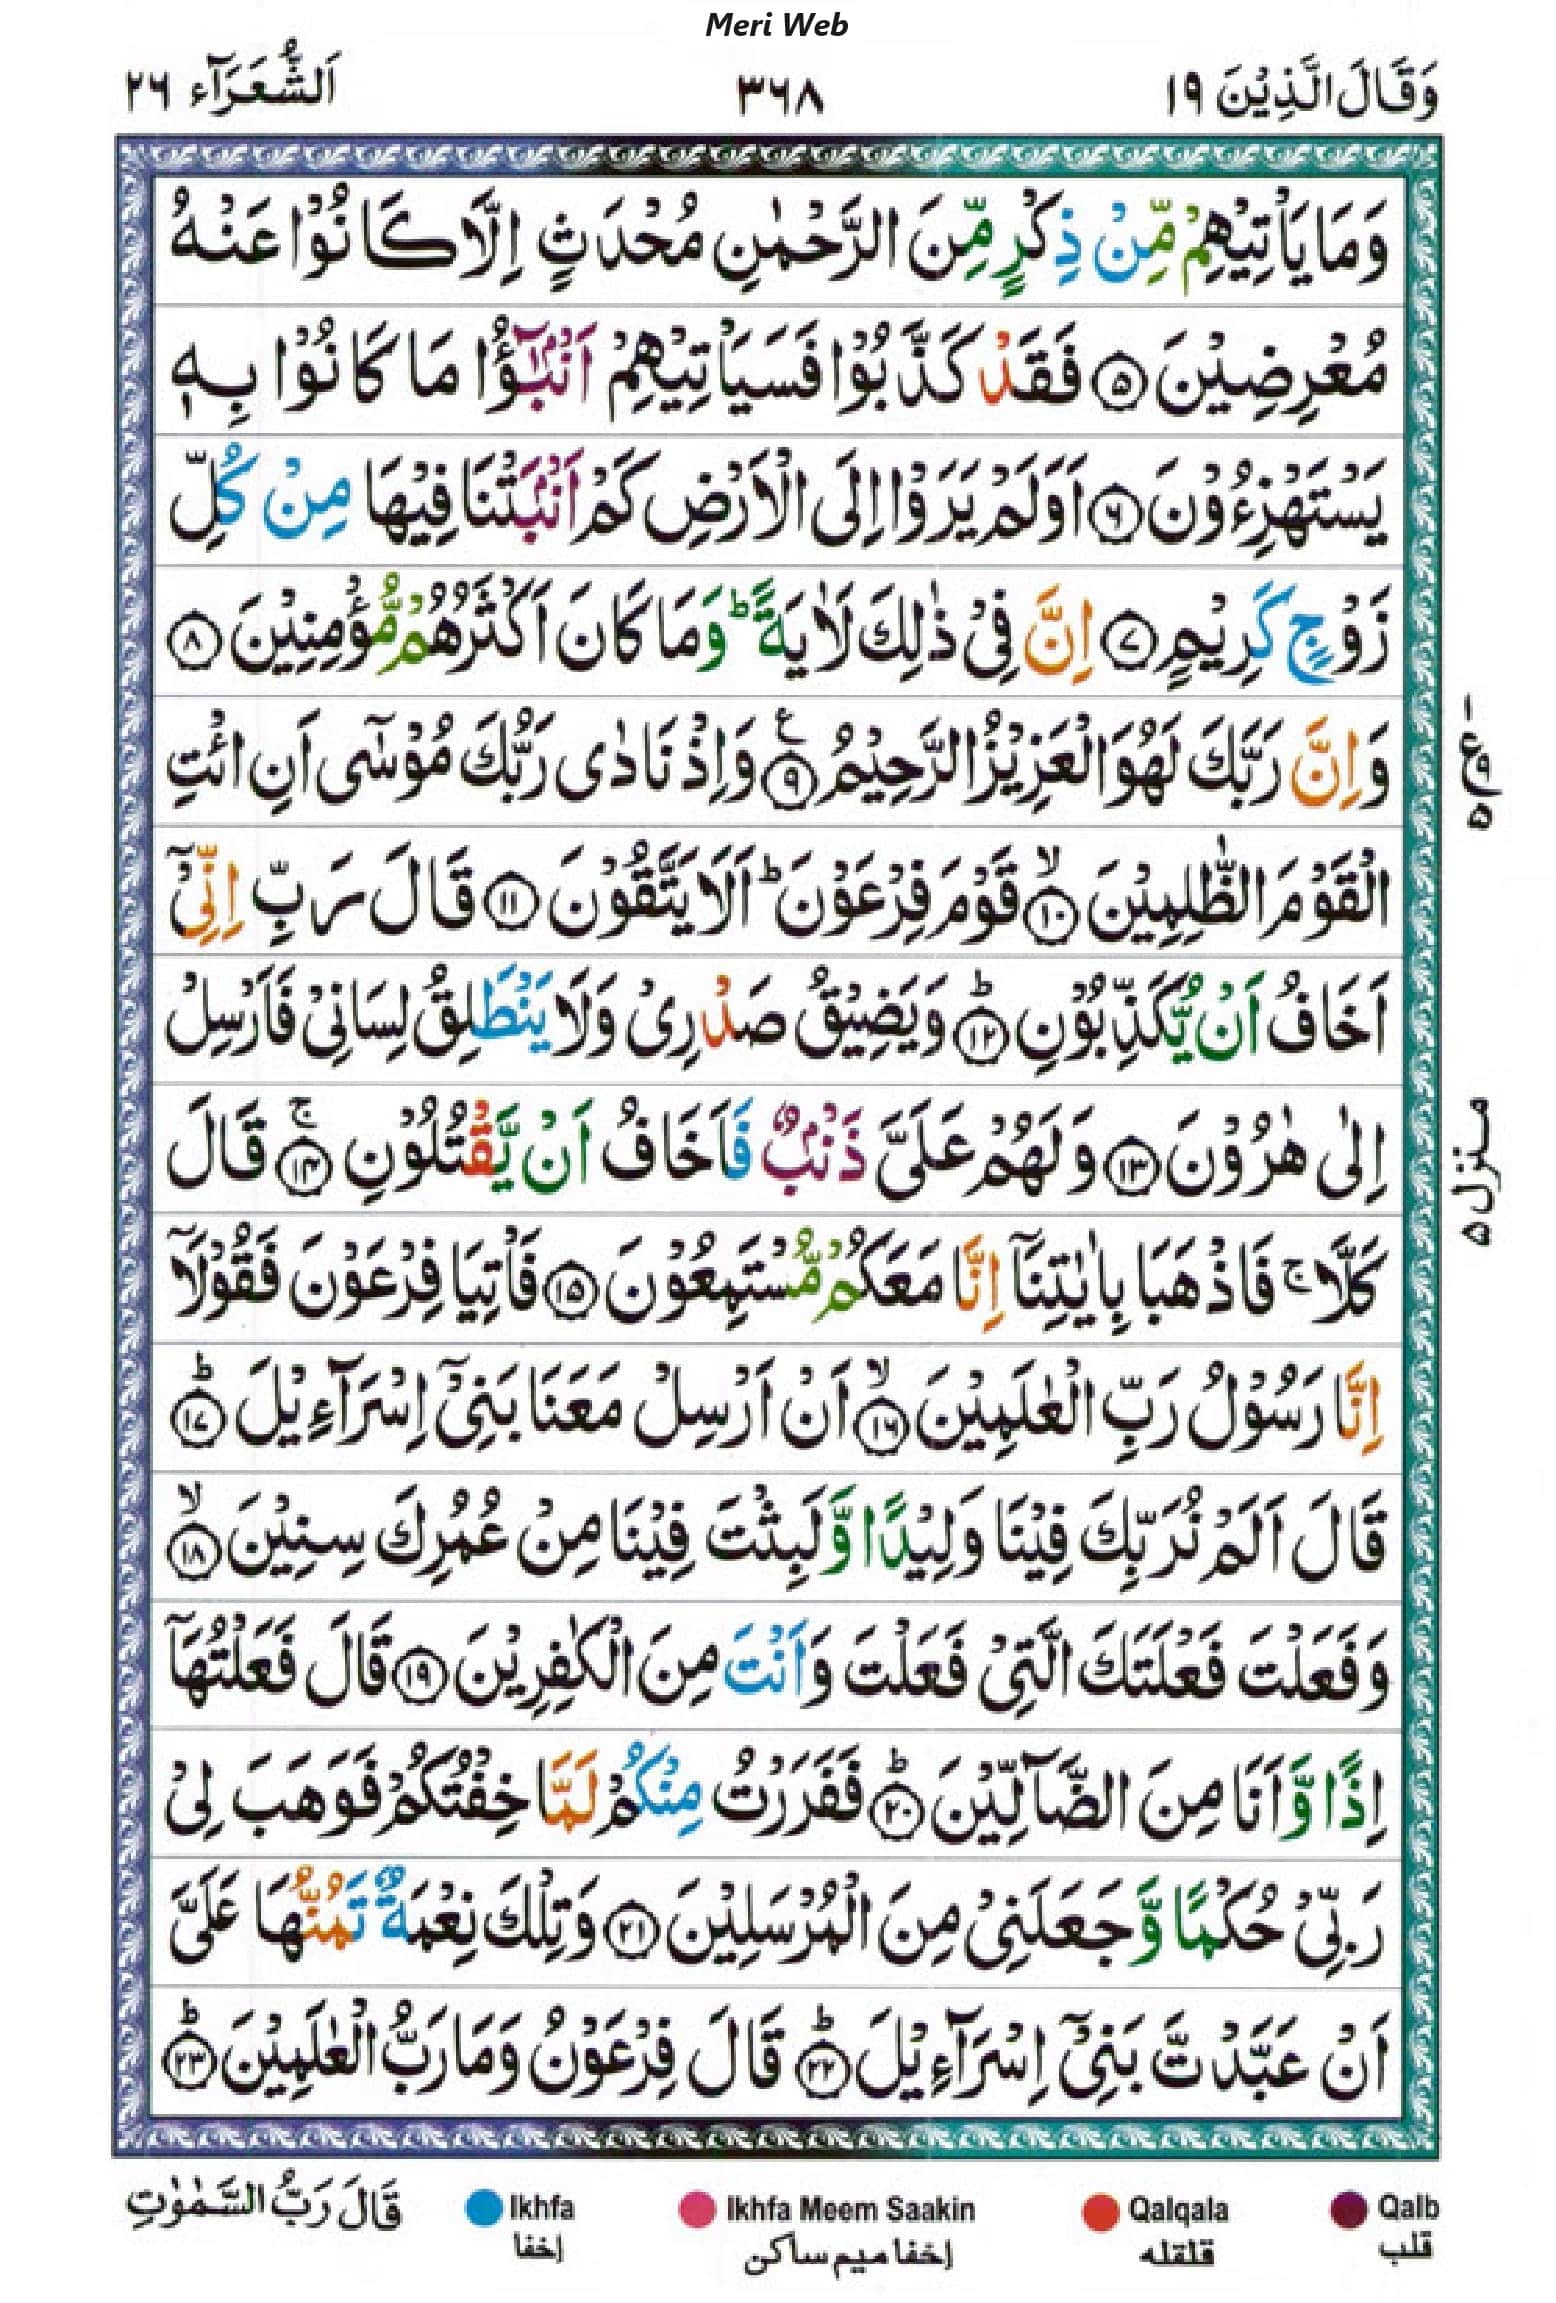 Meri Web
وَقَالَ الَّذِيْنَ ١٩
٣٦٨
اَلشُّعَرَآء ٢٦
وَمَا يَاْتِيْهِمْ مِّنْ ذِكْرٍ مِّنَ الرَّحْمٰنِ مُحْدَثٍ اِلَّا كَانُوْا عَنْهُ
مُعْرِضِيْنَ ۝٥ فَقَدْ كَذَّبُوْا فَسَيَاْتِيْهِمْ اَنْۢبٰٓؤُا مَا كَانُوْا بِهٖ
يَسْتَهْزِءُوْنَ ۝٦ اَوَلَمْ يَرَوْا اِلَى الْاَرْضِ كَمْ اَنْۢبَتْنَا فِيْهَا مِنْ كُلِّ
زَوْجٍ كَرِيْمٍ ۝٧ اِنَّ فِيْ ذٰلِكَ لَاٰيَةً ؕ وَمَا كَانَ اَكْثَرُهُمْ مُّؤْمِنِيْنَ ۝٨
وَاِنَّ رَبَّكَ لَهُوَ الْعَزِيْزُ الرَّحِيْمُ ۝٩ ع وَاِذْ نَادٰى رَبُّكَ مُوْسٰٓى اَنِ ائْتِ
الْقَوْمَ الظّٰلِمِيْنَ ۝١٠ۙ قَوْمَ فِرْعَوْنَ ؕ اَلَا يَتَّقُوْنَ ۝١١ قَالَ رَبِّ اِنِّيْٓ
اَخَافُ اَنْ يُّكَذِّبُوْنِ ۝١٢ؕ وَيَضِيْقُ صَدْرِيْ وَلَا يَنْطَلِقُ لِسَانِيْ فَاَرْسِلْ
اِلٰى هٰرُوْنَ ۝١٣ وَلَهُمْ عَلَيَّ ذَنْۢبٌ فَاَخَافُ اَنْ يَّقْتُلُوْنِ ۝١٤ۚ قَالَ
كَلَّا ۚ فَاذْهَبَا بِاٰيٰتِنَآ اِنَّا مَعَكُمْ مُّسْتَمِعُوْنَ ۝١٥ فَاْتِيَا فِرْعَوْنَ فَقُوْلَآ
اِنَّا رَسُوْلُ رَبِّ الْعٰلَمِيْنَ ۝١٦ۙ اَنْ اَرْسِلْ مَعَنَا بَنِيْٓ اِسْرَآءِيْلَ ۝١٧ؕ
قَالَ اَلَمْ نُرَبِّكَ فِيْنَا وَلِيْدًا وَّلَبِثْتَ فِيْنَا مِنْ عُمُرِكَ سِنِيْنَ ۝١٨ۙ
وَفَعَلْتَ فَعْلَتَكَ الَّتِيْ فَعَلْتَ وَاَنْتَ مِنَ الْكٰفِرِيْنَ ۝١٩ قَالَ فَعَلْتُهَآ
اِذًا وَّاَنَا مِنَ الضَّآلِّيْنَ ۝٢٠ؕ فَفَرَرْتُ مِنْكُمْ لَمَّا خِفْتُكُمْ فَوَهَبَ لِيْ
رَبِّيْ حُكْمًا وَّجَعَلَنِيْ مِنَ الْمُرْسَلِيْنَ ۝٢١ وَتِلْكَ نِعْمَةٌ تَمُنُّهَا عَلَيَّ
اَنْ عَبَّدْتَّ بَنِيْٓ اِسْرَآءِيْلَ ۝٢٢ؕ قَالَ فِرْعَوْنُ وَمَا رَبُّ الْعٰلَمِيْنَ ۝٢٣ؕ
منزل ٥
قَالَ رَبُّ السَّمٰوٰتِ
Ikhfa
إخفا
Ikhfa Meem Saakin
إخفا ميم ساكن
Qalqala
قلقله
Qalb
قلب